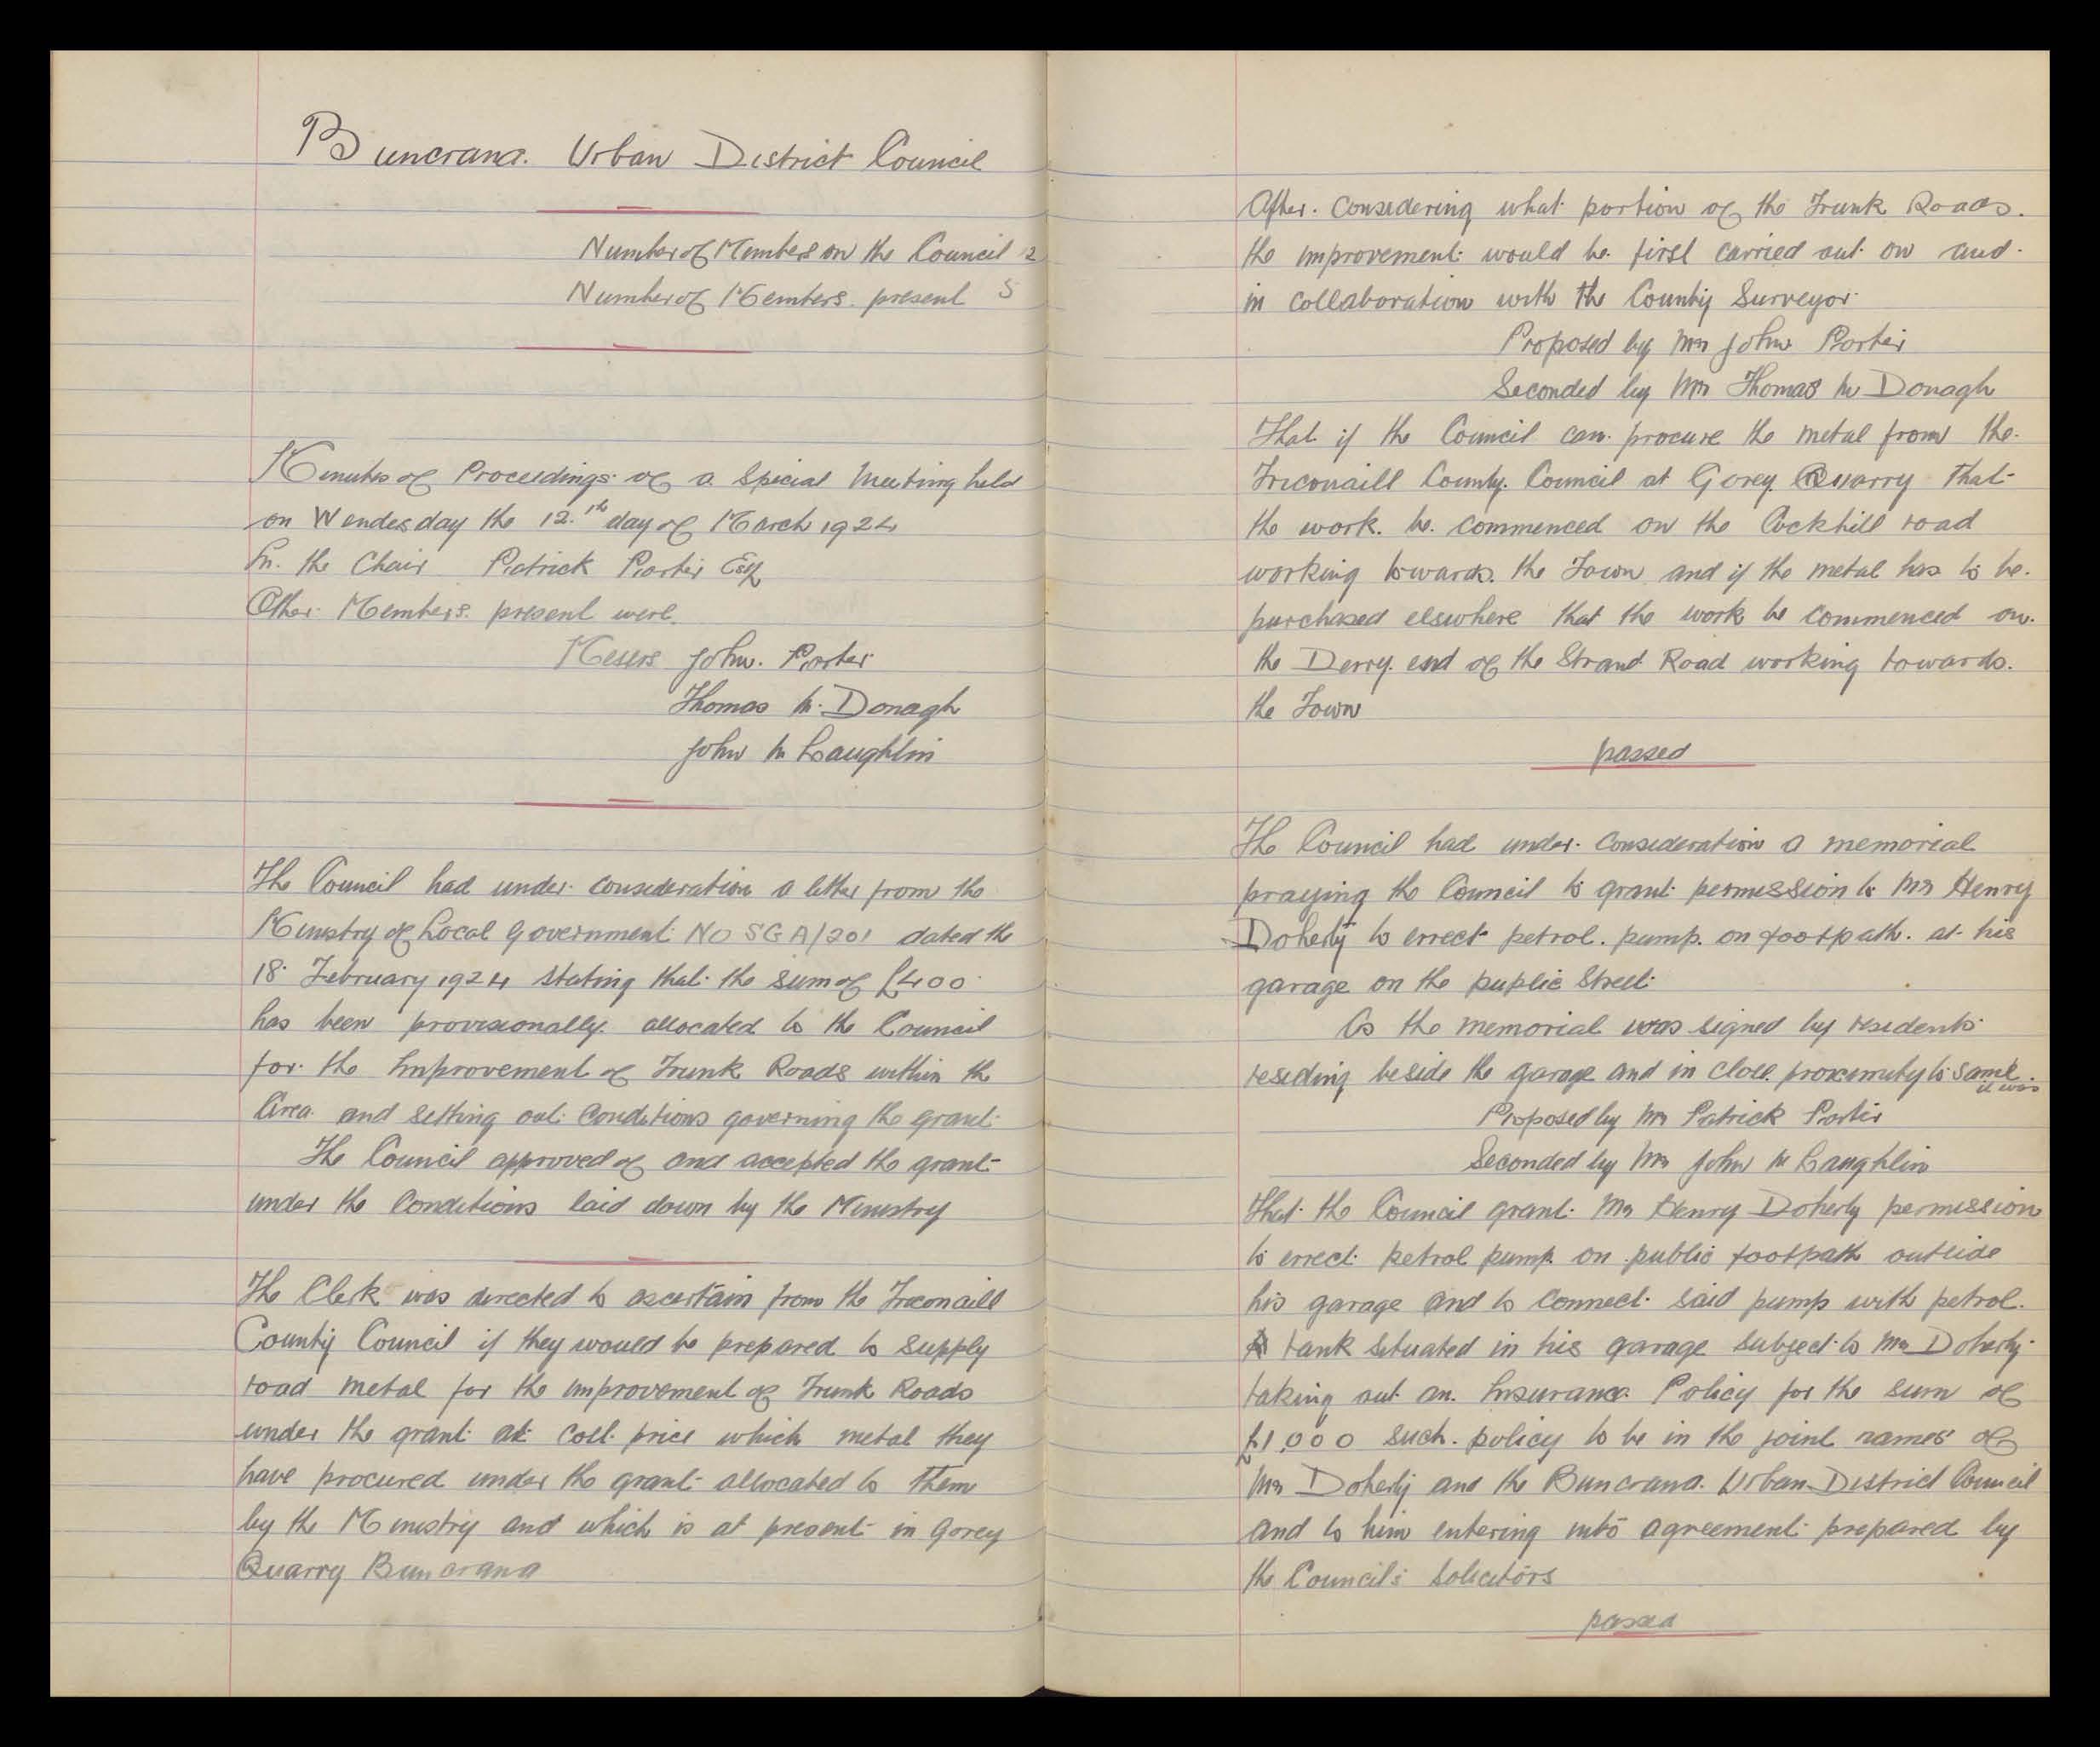 Buncrana. Urban District Council
Number of Members on the Council 12
Number of Members present 5
Minutes of Proceedings of a Special Meeting held
on Wendesday the 12.th day of March 1924
In the Chair Patrick Porter Esq
Other Members present were.
Messrs John Porter
Thomas Mc Donagh
John Mc Laughlin
The Council had under consideration a letter from the
Ministry of Local Government No SGA/201 dated the
18 February 1924 stating that the sum of £400
has been provisionally allocated to the Council
for the Improvement of Trunk Roads within the
Area and setting out Conditions governing the grant
The Council approved of and accepted the grant
under the Conditions laid down by the Ministry
The Clerk was directed to ascertain from the Tirconaill
County Council if they would be prepared to supply
road metal for the improvement of Trunk Roads
under the grant at cost price which metal they
have procured under the grant allocated to them
by the Ministry and which is at present in Gorey
Quarry Buncrana
After Considering what portion of the Trunk Roads.
the improvement would be first carried out on and
in collaboration with the County Surveyor
Proposed by Mr John Porter
Seconded by Mr Thomas Mc Donagh
That if the Council can procure the metal from the
Tirconaill County Council at Gorey Quarry That
the work be commenced on the Cockhill road
working towards the Town and if the metal has to be
purchased elsewhere that the work be commenced on
the Derry end of the Strand Road working towards
the Town
passed
The Council had under consideration a memorial
praying the Council to grant permission to Mr Henry
Doherty to errect petrol pump on footpath at his
garage on the public Street
As the memorial was signed by residents
residing beside the garage and in close proximity to same it was
Proposed by Mr Patrick Porter
Seconded by Mr John Mc Laughlin
That the Council grant Mr Henry Doherty permission
to errect petrol pump on public footpath outside
his garage and to connect said pump with petrol
tank situated in his garage subject to Mr Doherty
taking out an Insurance Policy for the sum of
£1,000 such policy to be in the joint names of
Mr Doherty and the Buncrana Urban District Council
and to him entering into agreement prepared by
the Council's Solicitors
passed